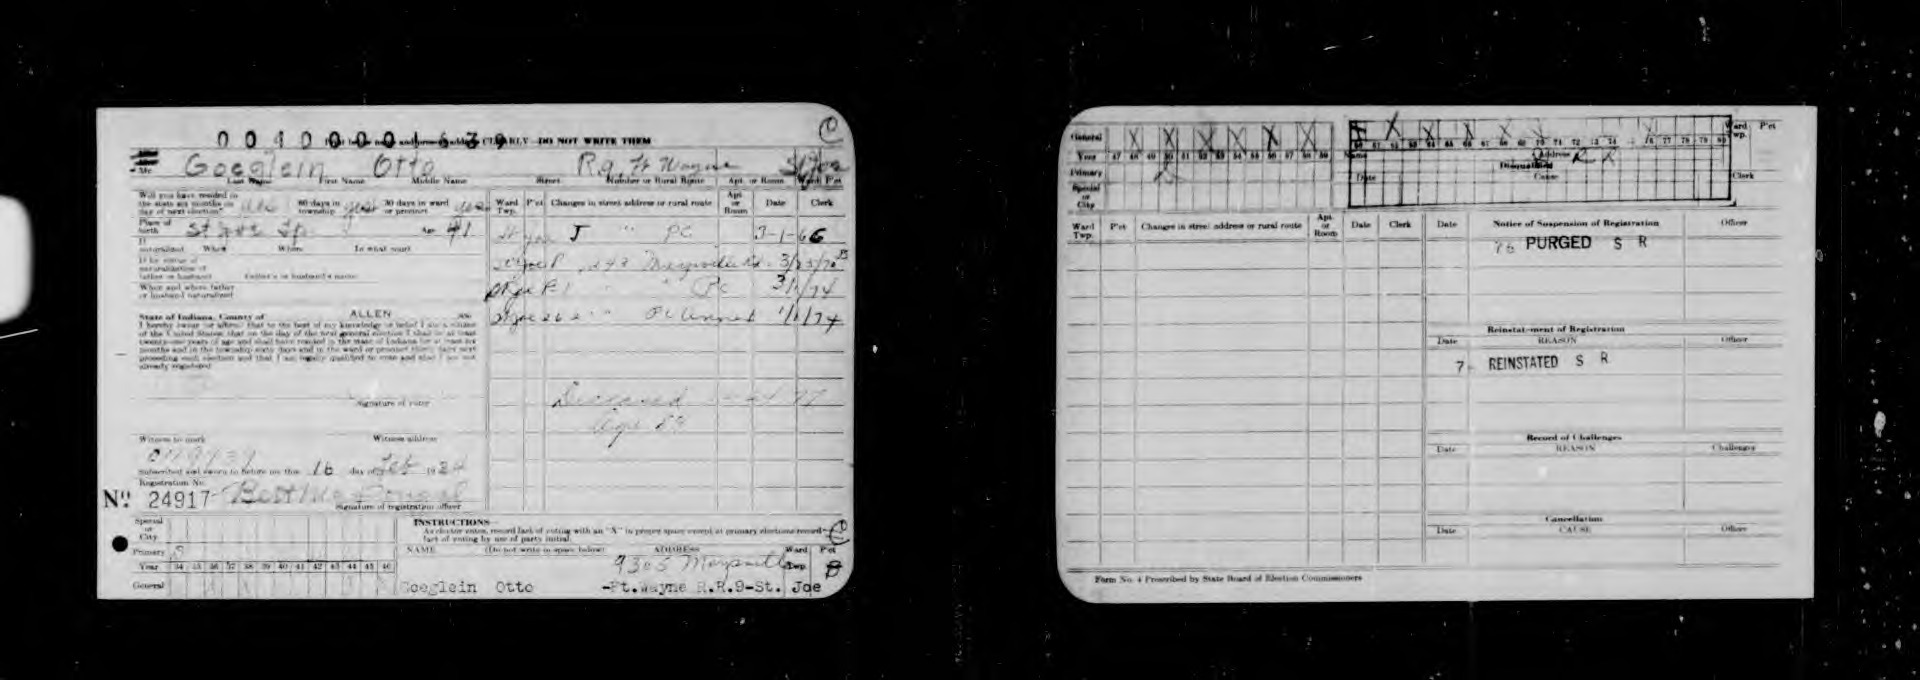 CLEARLY—DO NOT WRITE THEM
Mr. Goeglein Otto R9, Ft Wayne St Joe
Last Name First Name Middle Name Street Number or Rural Route Apt. or Room Ward P'ct
Will you have resided in the state six months on day of next election? yes 60 days in township yes 30 days in ward or precinct yes
Place of birth St Joe Tp. Age 41
If naturalized When Where In what court
If by virtue of naturalization of father or husband Father's or husband's name
When and where father or husband naturalized
State of Indiana, County of ALLEN
I hereby swear (or affirm) that to the best of my knowledge or belief I am a citizen
of the United States; that on the day of the next general election I shall be at least
twenty-one years of age and shall have resided in the state of Indiana for at least six
months and in the township sixty days and in the ward or precinct thirty days next
preceding such election and that I am legally qualified to vote and that I am not
already registered.
Signature of voter
Witness to mark Witness address
Subscribed and sworn to before me this 16 day of Feb 1934
Registration No.
No 24917 Bert McDougal
Signature of registration officer
Ward Twp. P'ct Changes in street address or rural route Apt. or Room Date Clerk
J " PC 3-1-66
Maysville Rd 3/25/70
" PC 3/1/74
1/1/74
Deceased 77
Age 83
Special or City
Primary
Year 34 35 36 37 38 39 40 41 42 43 44 45 46
General
INSTRUCTIONS—
As elector votes, record fact of voting with an "X" in proper space except at primary elections record
fact of voting by use of party initial.
NAME (Do not write in space below) ADDRESS Ward Twp. P'ct
9305 Maysville
Goeglein Otto -Ft.Wayne R.R.9-St. Joe
General X X X X X X
Year 47 48 49 50 51 52 53 54 55 56 57 58 59
Primary
Special or City
Name Address
Disqualified
Date Cause
Ward Twp. P'ct
Clerk
Ward Twp. P'ct Changes in street address or rural route Apt. or Room Date Clerk
Date Notice of Suspension of Registration Officer
76 PURGED S R
Reinstatement of Registration
Date REASON Officer
7 REINSTATED S R
Record of Challenges
Date REASON Challenger
Cancellation
Date CAUSE Officer
Form No. 4 Prescribed by State Board of Election Commissioners